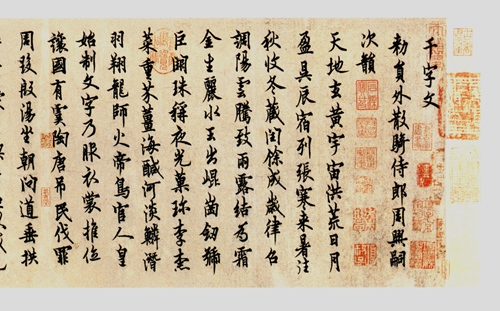 千字文
勅員外散騎侍郎周興嗣
次韻
天地玄黃宇宙洪荒日月
盈昃辰宿列張寒来暑往
秋收冬藏閏餘成歲律召
調陽雲騰致雨露結為霜
金生麗水玉出崐崗劒號
巨闕珠稱夜光菓珎李柰
菜重芥薑海鹹河淡鱗潛
羽翔龍師火帝鳥官人皇
始制文字乃服衣裳推位
讓國有虞陶唐吊民伐罪
周發殷湯坐朝問道垂拱